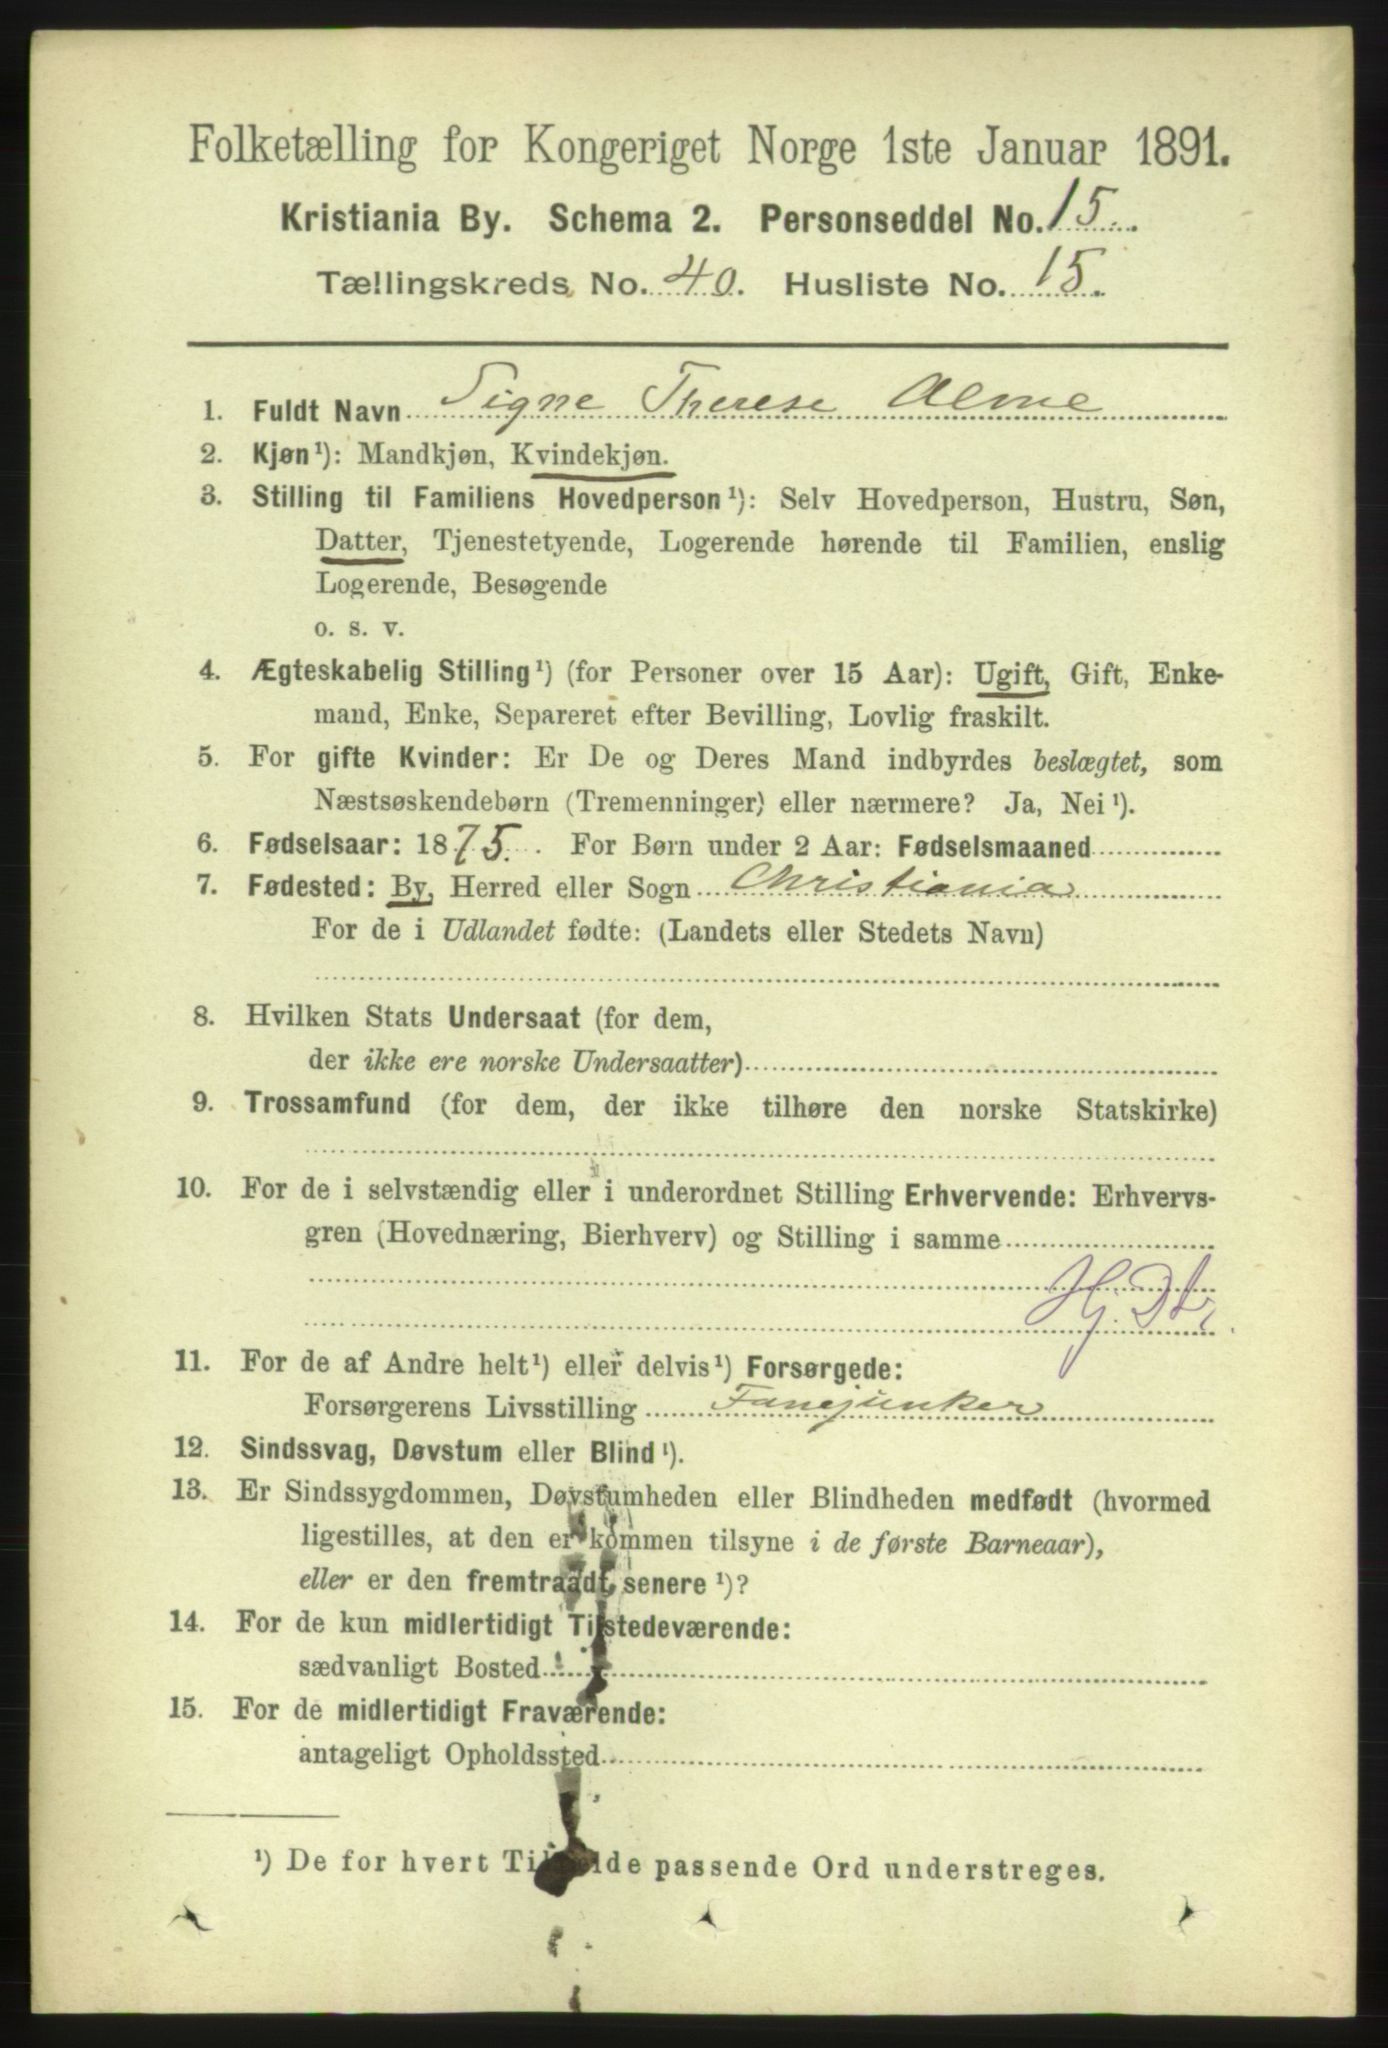 Folketælling for Kongeriget Norge 1ste Januar 1891.
Kristiania By. Schema 2. Personseddel No. 15.
Tællingskreds No. 40. Husliste No. 15.
1. Fuldt Navn Signe Therese Alme
2. Kjøn¹): Mandkjøn, Kvindekjøn.
3. Stilling til Familiens Hovedperson¹): Selv Hovedperson, Hustru, Søn,
Datter, Tjenestetyende, Logerende hørende til Familien, enslig
Logerende, Besøgende
o. s. v.
4. Ægteskabelig Stilling¹) (for Personer over 15 Aar): Ugift, Gift, Enke-
mand, Enke, Separeret efter Bevilling, Lovlig fraskilt.
5. For gifte Kvinder: Er De og Deres Mand indbyrdes beslægtet, som
Næstsøskendebørn (Tremenninger) eller nærmere? Ja, Nei¹).
6. Fødselsaar: 1875. For Børn under 2 Aar: Fødselsmaaned
7. Fødested: By, Herred eller Sogn Christiania
For de i Udlandet fødte: (Landets eller Stedets Navn)
8. Hvilken Stats Undersaat (for dem,
der ikke ere norske Undersaatter)
9. Trossamfund (for dem, der ikke tilhøre den norske Statskirke)
10. For de i selvstændig eller i underordnet Stilling Erhvervende: Erhvervs-
gren (Hovednæring, Bierhverv) og Stilling i samme
Hj. Dtr.
11. For de af Andre helt¹) eller delvis¹) Forsørgede:
Forsørgerens Livsstilling Fanejunker
12. Sindssvag, Døvstum eller Blind¹).
13. Er Sindssygdommen, Døvstumheden eller Blindheden medfødt (hvormed
ligestilles, at den er kommen tilsyne i de første Barneaar),
eller er den fremtraadt senere¹)?
14. For de kun midlertidigt Tilstedeværende:
sædvanligt Bosted
15. For de midlertidigt Fraværende:
antageligt Opholdssted
¹) De for hvert Tilfælde passende Ord understreges.